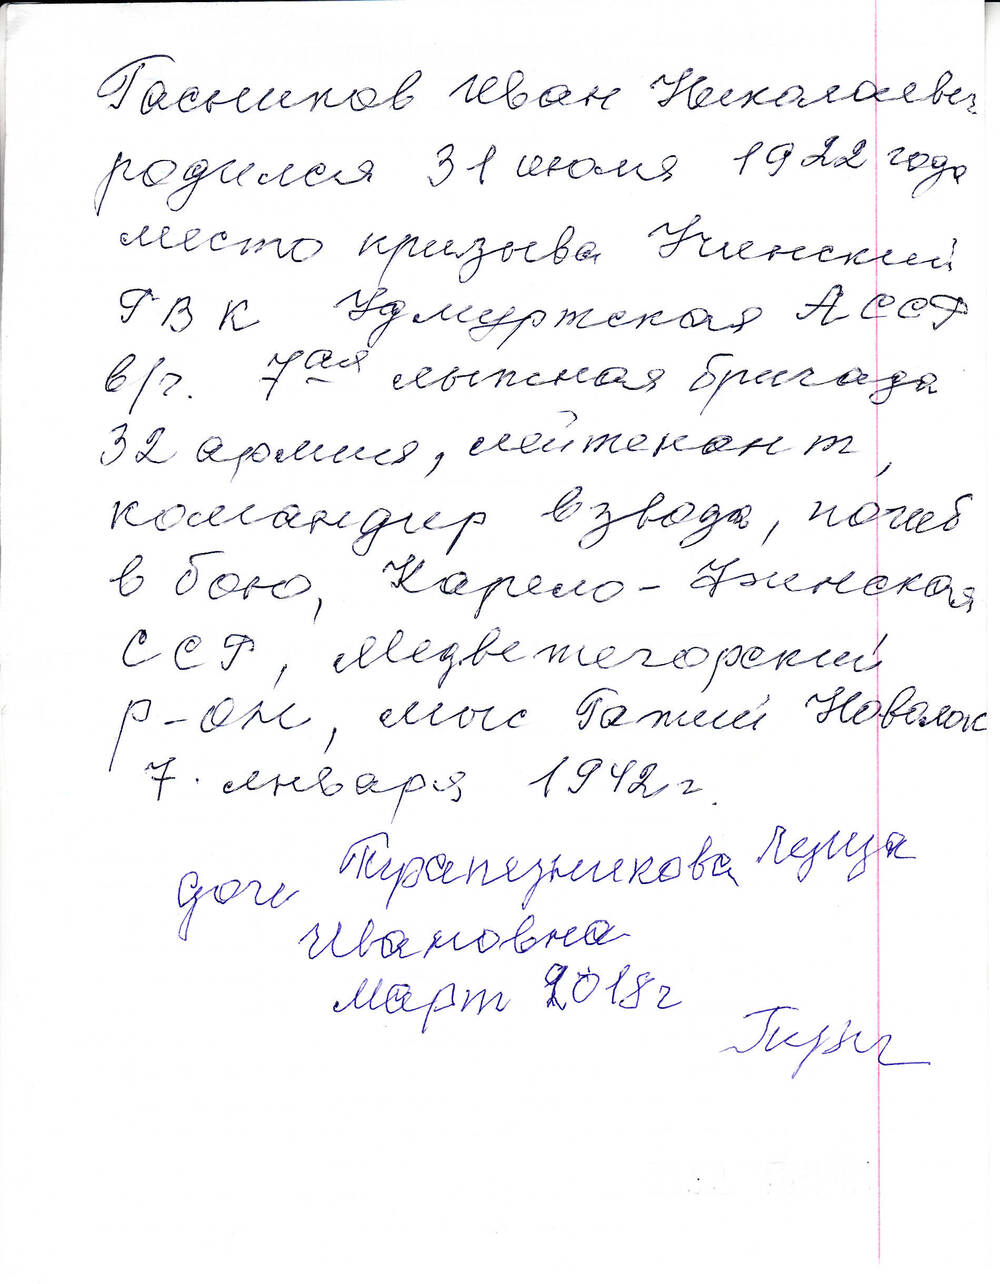 Гасников Иван Николаевич
родился 31 июля 1922 года
место призыва Учинский
РВК Удмуртская АССР
в/ч. 7ая лыжная бригада
32 армия, лейтенант,
командир взвода, погиб
в бою, Карело-Финская
ССР, Медвежегорский
р-он, мыс Гажий Наволок
7. января 1942 г.
дочь Трапезникова
Ивановна
март 2018 г